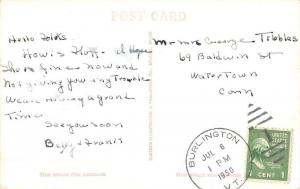 POST CARD
Hello Folks
How is Flossi. I Hope
She is fine now and
Not giving you any Trouble
We are Having a grand
Time
See you soon
Betty & Frank
Mr & Mrs George Tibbles
69 Baldwin St
WaterTown
Conn
BURLINGTON
JUL 6
1 PM
1950
VT.
1 CENT 1